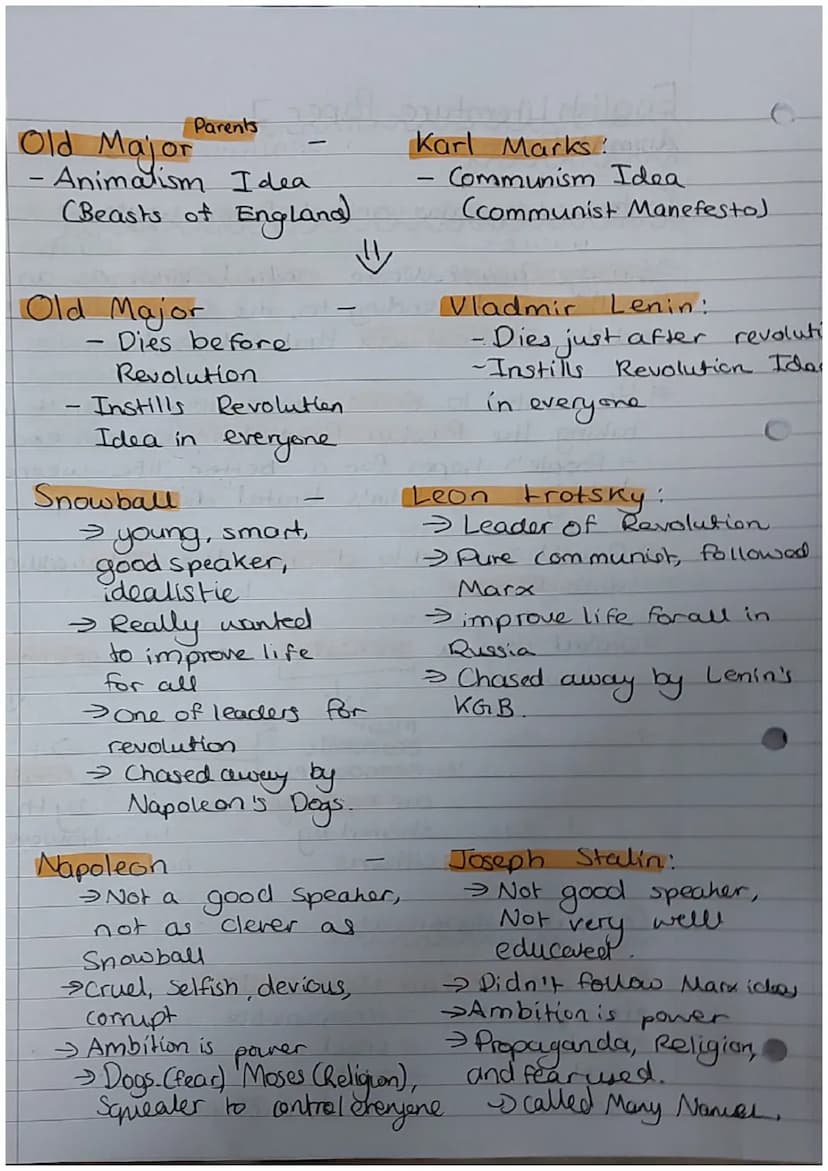 Parents
Old Major - Karl Marks:
- Animalism Idea - Communism Idea
(Beasts of England) (communist Manefesto)
⇓
Old Major - Vladmir Lenin:
- Dies before - Dies just after revoluti
Revolution - Instills Revolution Idea
- Instills Revolution in everyone
Idea in everyone
Snowball - Leon trotsky:
→ young, smart, → Leader of Revolution
good speaker, → Pure communist, followed
idealistic Marx
→ Really wanted → improve life for all in
to improve life Russia
for all → Chased away by Lenin's
→ One of leaders for KGB.
revolution
→ Chased away by
Napoleon's Dogs.
Napoleon - Joseph Stalin:
→ Not a good speaker, → Not good speaker,
not as clever as Not very well
Snowball educated.
→ Cruel, selfish, devious, → Didn't follow Marx ideas
corrupt → Ambition is power
→ Ambition is power → Propaganda, Religion,
→ Dogs (fear) Moses (Religion), and fear used.
Squealer to control everyone → called Many Names.